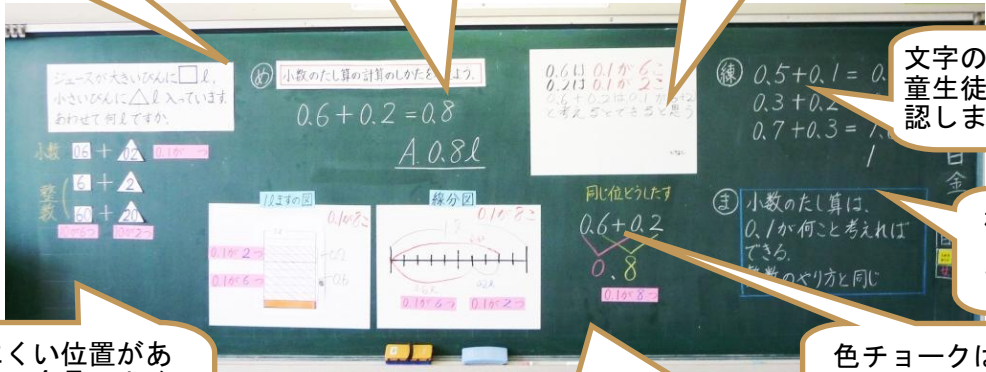 ジュースが大きいびんに□l、
小さいびんに△l入っています。
あわせて何lですか。
小数 0.6 + 0.2 0.1が つ
整数
6 + 2
60 + 20
10が6つ 10が2つ
め 小数のたし算の計算のしかたを よう。
0.6 + 0.2 = 0.8
A. 0.8l
1lますの図
0.1が8こ
0.1が2つ
0.1が6つ
0.2
0.6
線分図
0.1が8こ
0.1が6つ 0.1が2つ
0.6は 0.1が 6こ
0.2は 0.1が 2こ
0.6+0.2は0.1が6+2
と考えるとできると思う
同じ位どうしたす
0.6+0.2
0.8
0.1が8つ
練 0.5+0.1 = 0.
0.3+0.2
0.7+0.3 = 1.
1
ま 小数のたし算は、
0.1が何こと考えれば
できる。
整数のやり方と同じ
金
文字の
童生徒
認しま
くい位置があ
色チョークは